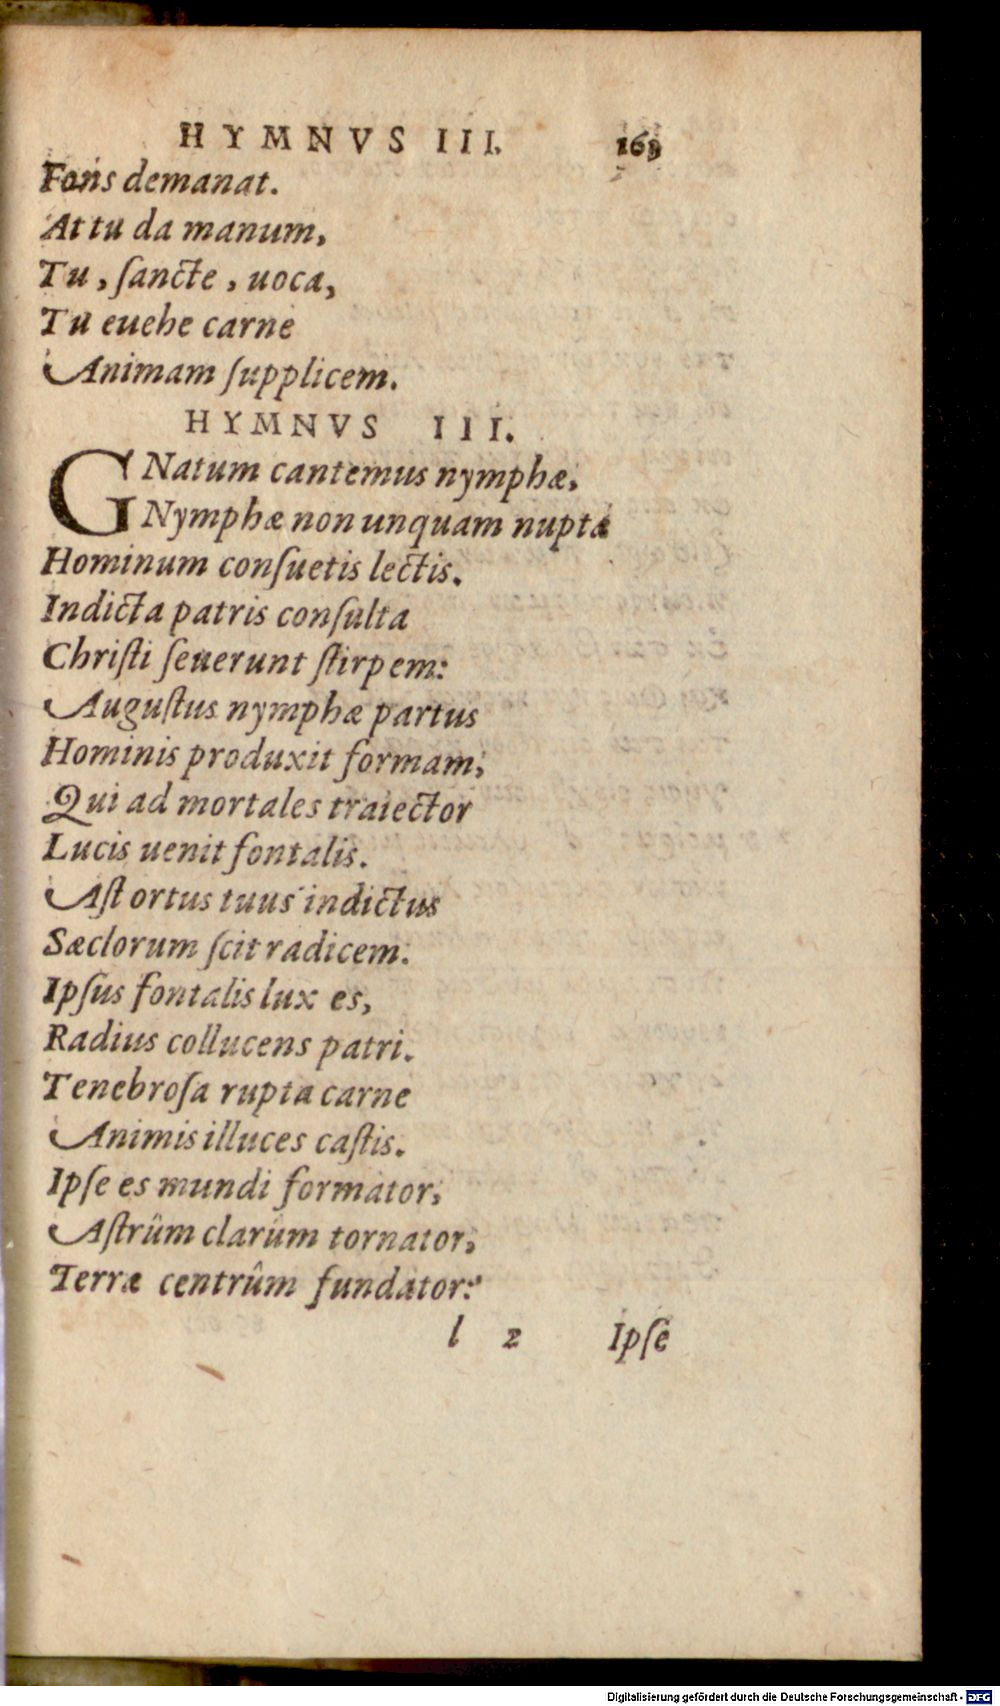 HYMNVS III. 163
Fons demanat.
At tu da manum,
Tu, ſancte, uoca,
Tu euehe carne
Animam ſupplicem.
HYMNVS III.
GNatum cantemus nymphæ,
Nymphæ non unquam nuptæ
Hominum conſuetis lectis.
Indicta patris conſulta
Chriſti ſeuerunt ſtirpem:
Auguſtus nymphæ partus
Hominis produxit formam;
Qui ad mortales traiector
Lucis uenit fontalis.
Aſt ortus tuus indictus
Sæclorum ſcit radicem.
Ipſus fontalis lux es,
Radius collucens patri.
Tenebroſa rupta carne
Animis illuces caſtis.
Ipſe es mundi formator,
Aſtrûm clarûm tornator,
Terræ centrûm fundator:
l 2 Ipſe
Digitalisierung gefördert durch die Deutsche Forschungsgemeinschaft - DFG